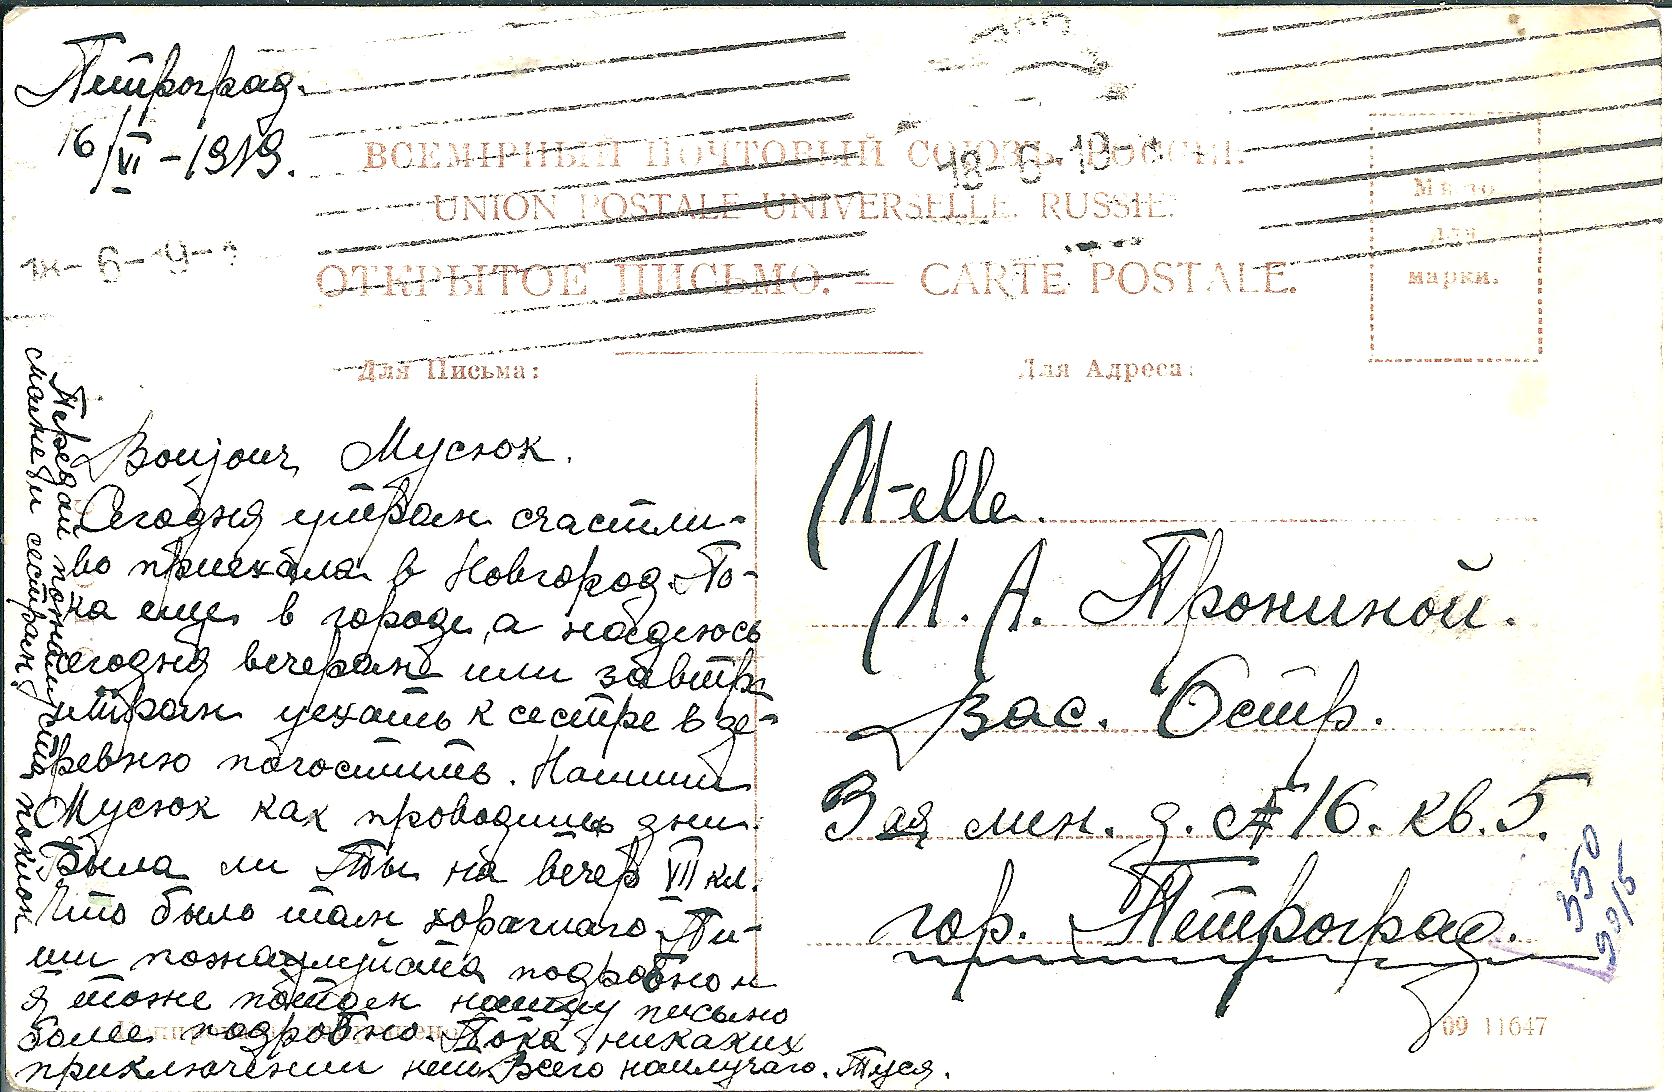 Петроград.
16/VI – 1919.
ВСЕМІРНЫЙ ПОЧТОВЫЙ СОЮЗЪ. РОССІЯ.
UNION POSTALE UNIVERSELLE. RUSSIE.
ОТКРЫТОЕ ПИСЬМО. — CARTE POSTALE.
Мѣсто
для
марки.
18-6-19
Для Письма:
Для Адреса:
Bonjour Мусюк.
Сегодня утром счастли-
во приехала в Новгород. По-
ка еще в городе, а надеюсь
сегодня вечером или завтра
утром уехать к сестре в де-
ревню погостить. Напиши
Мусюк как проводишь дни.
Была ли Ты на вечер VII кл.
Что было там хорошаго. Пи-
ши пожалуйста подробно и
я тоже потом напишу письмо
более подробно. Пока никаких
приключений нет. Всего наилучшаго. Туся.
Передай пожалуйста поклон
маме и сестрам.
M-elle.
М. А. Прониной.
Вас. Остр.
3ая лин. д. № 16. кв. 5.
гор. Петроград.
350
09 11647